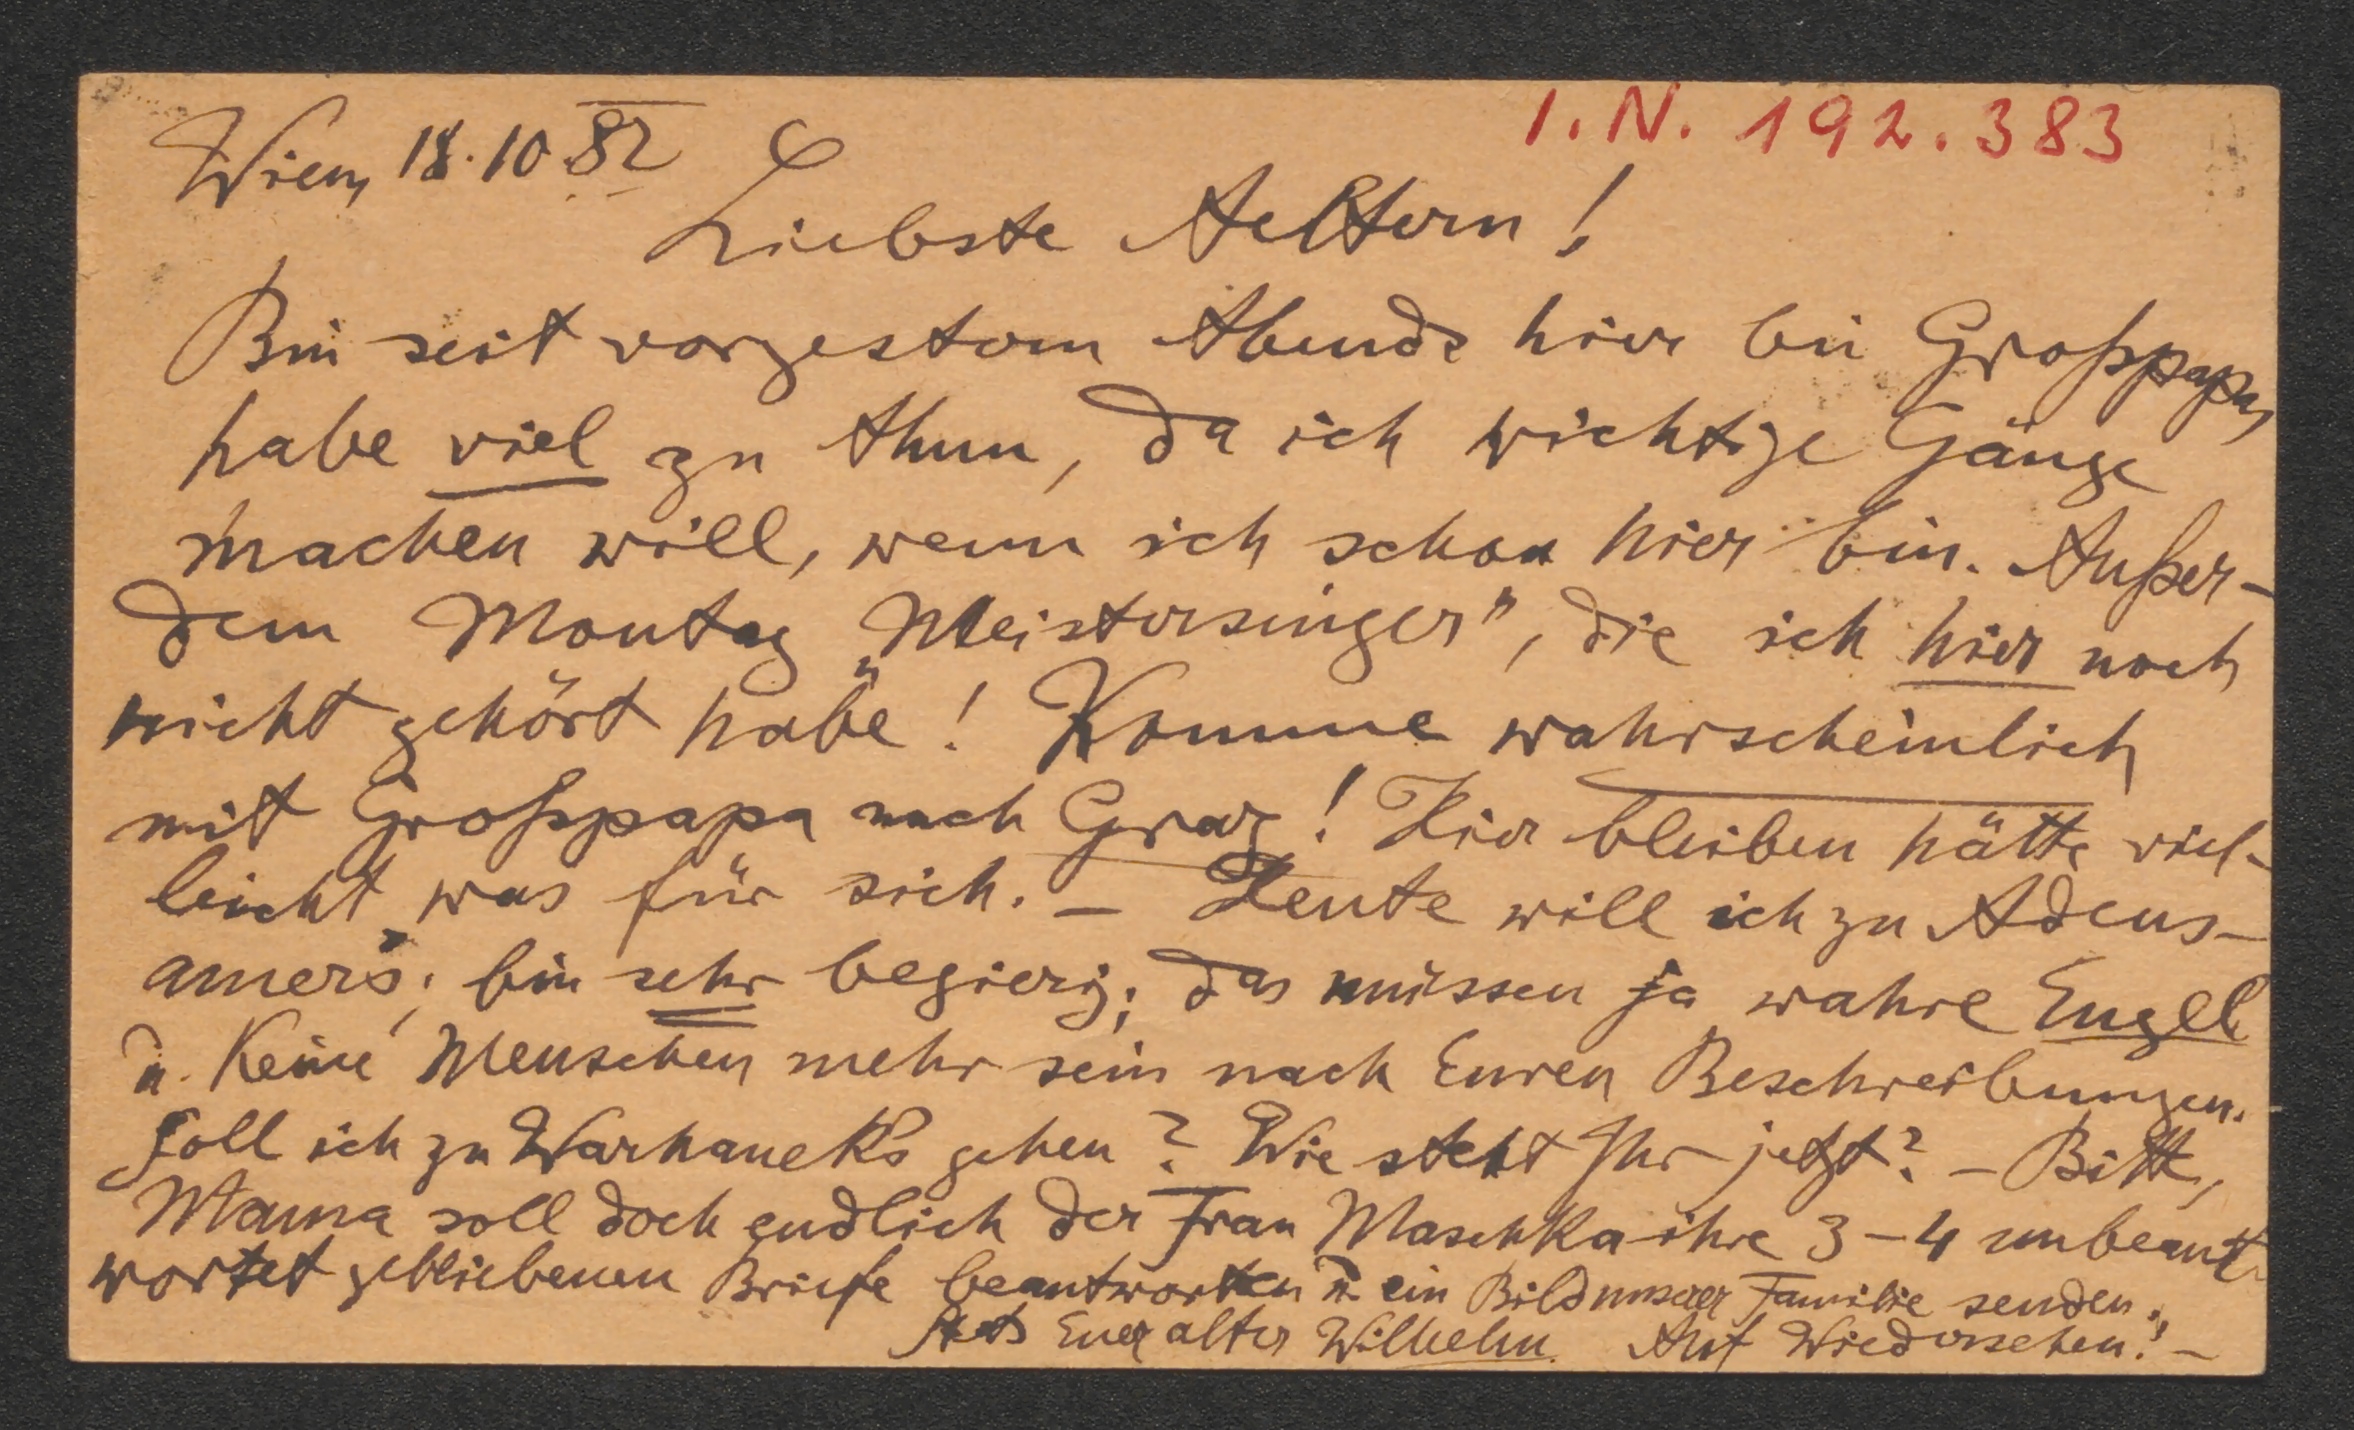 I. N. 192.383
Wien, 18.10.82
Liebste Aeltern!
Bin seit vorgestern Abends hier bei Großpapa,
habe viel zu thun, da ich wichtige Gänge
machen will, wenn ich schon hier bin. Außer-
dem Montag „Meistersinger", die ich hier noch
nicht gehört habe! Komme wahrscheinlich
mit Großpapa nach Graz! Hier bleiben hätte viel-
leicht was für sich. – Heute will ich zu Adens-
amers; bin sehr begierig; das müssen ja wahre Engel
u. keine Menschen mehr sein nach Euren Beschreibungen.
Soll ich zu Warhaneks gehen? Wie steht Ihr jetzt? – Bitte,
Mama soll doch endlich der Frau Maschka ihre 3–4 unbeant-
wortet gebliebenen Briefe beantworten u. ein Bild unserer Familie senden.
Stets Euer alter Wilhelm. Auf Wiedersehen! –